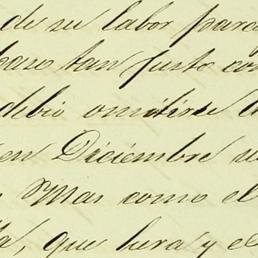 de su labor para
tan justo con
debió omitirse
en Diciembre
Mas como el
que hará y el